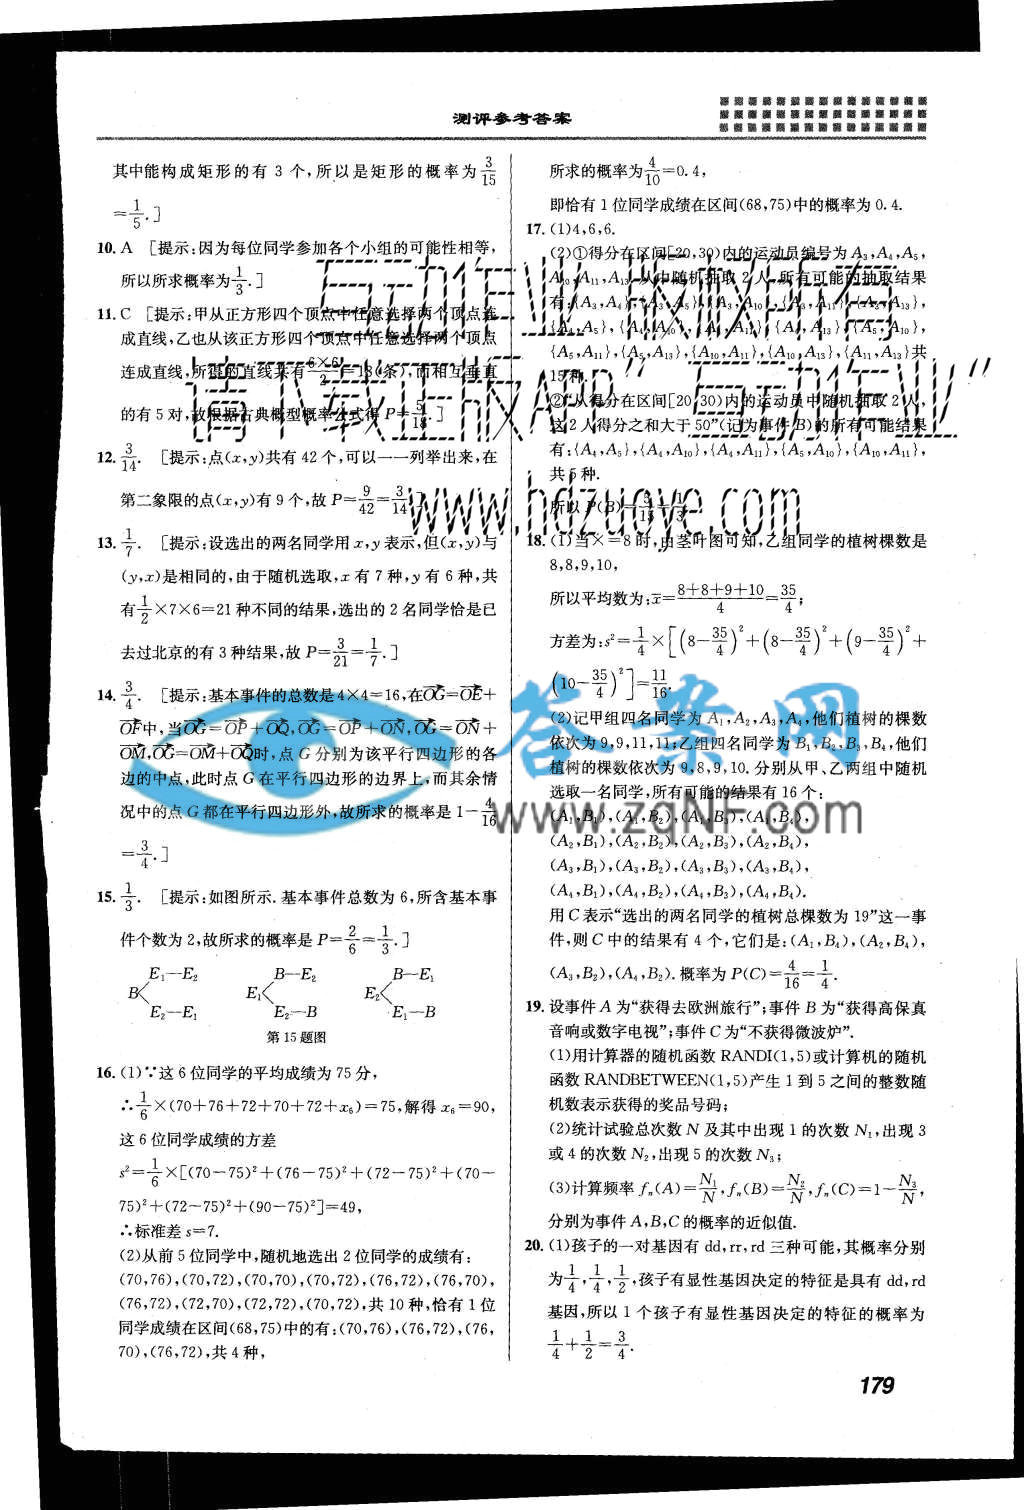 测评参考答案
其中能构成矩形的有 3 个,所以是矩形的概率为 3/15
=1/5.]
10. A [提示:因为每位同学参加各个小组的可能性相等,
所以所求概率为 1/3.]
11. C [提示:甲从正方形四个顶点中任意选择两个顶点连
成直线,乙也从该正方形四个顶点中任意选择两个顶点
连成直线,所得的直线共有 6×6/2=18(条),而相互垂直
的有 5 对,故根据古典概型概率公式得 P=5/18.]
12. 3/14. [提示:点(x,y)共有 42 个,可以一一列举出来,在
第二象限的点(x,y)有 9 个,故 P=9/42=3/14.]
13. 1/7. [提示:设选出的两名同学用 x,y 表示,但(x,y)与
(y,x)是相同的,由于随机选取,x 有 7 种,y 有 6 种,共
有 1/2×7×6=21 种不同的结果,选出的 2 名同学恰是已
去过北京的有 3 种结果,故 P=3/21=1/7.]
14. 3/4. [提示:基本事件的总数是 4×4=16,在OG=OE+
OF中,当OG=OP+OQ,OG=OP+ON,OG=ON+
OM,OG=OM+OQ时,点 G 分别为该平行四边形的各
边的中点,此时点 G 在平行四边形的边界上,而其余情
况中的点 G 都在平行四边形外,故所求的概率是 1-4/16
=3/4.]
15. 1/3. [提示:如图所示. 基本事件总数为 6,所含基本事
件个数为 2,故所求的概率是 P=2/6=1/3.]
E₁—E₂ B—E₂ B—E₁
B< E₁< E₂<
E₂—E₁ E₂—B E₁—B
第 15 题图
16. (1)∵这 6 位同学的平均成绩为 75 分,
∴1/6×(70+76+72+70+72+x₆)=75,解得 x₆=90,
这 6 位同学成绩的方差
s²=1/6×[(70-75)²+(76-75)²+(72-75)²+(70-
75)²+(72-75)²+(90-75)²]=49,
∴标准差 s=7.
(2)从前 5 位同学中,随机地选出 2 位同学的成绩有:
(70,76),(70,72),(70,70),(70,72),(76,72),(76,70),
(76,72),(72,70),(72,72),(70,72),共 10 种,恰有 1 位
同学成绩在区间(68,75)中的有:(70,76),(76,72),(76,
70),(76,72),共 4 种,
所求的概率为 4/10=0.4,
即恰有 1 位同学成绩在区间(68,75)中的概率为 0.4.
17. (1)4,6,6.
(2)①得分在区间[20,30)内的运动员编号为 A₃,A₄,A₅,
A₁₀,A₁₁,A₁₃,从中随机抽取 2 人,所有可能的抽取结果
有:{A₃,A₄},{A₃,A₅},{A₃,A₁₀},{A₃,A₁₁},{A₃,A₁₃},
{A₄,A₅},{A₄,A₁₀},{A₄,A₁₁},{A₄,A₁₃},{A₅,A₁₀},
{A₅,A₁₁},{A₅,A₁₃},{A₁₀,A₁₁},{A₁₀,A₁₃},{A₁₁,A₁₃}共
15 种.
②“从得分在区间[20,30)内的运动员中随机抽取 2 人,
这 2 人得分之和大于 50”(记为事件 B)的所有可能结果
有:{A₄,A₅},{A₄,A₁₀},{A₄,A₁₁},{A₅,A₁₀},{A₁₀,A₁₁},
共 5 种.
所以 P(B)=5/15=1/3.
18. (1)当 X=8 时,由茎叶图可知,乙组同学的植树棵数是
8,8,9,10,
所以平均数为:x̄=8+8+9+10/4=35/4;
方差为:s²=1/4×[(8-35/4)²+(8-35/4)²+(9-35/4)²+
(10-35/4)²]=11/16.
(2)记甲组四名同学为 A₁,A₂,A₃,A₄,他们植树的棵数
依次为 9,9,11,11;乙组四名同学为 B₁,B₂,B₃,B₄,他们
植树的棵数依次为 9,8,9,10. 分别从甲、乙两组中随机
选取一名同学,所有可能的结果有 16 个:
(A₁,B₁),(A₁,B₂),(A₁,B₃),(A₁,B₄),
(A₂,B₁),(A₂,B₂),(A₂,B₃),(A₂,B₄),
(A₃,B₁),(A₃,B₂),(A₃,B₃),(A₃,B₄),
(A₄,B₁),(A₄,B₂),(A₄,B₃),(A₄,B₄).
用 C 表示“选出的两名同学的植树总棵数为 19”这一事
件,则 C 中的结果有 4 个,它们是:(A₁,B₄),(A₂,B₄),
(A₃,B₂),(A₄,B₂). 概率为 P(C)=4/16=1/4.
19. 设事件 A 为“获得去欧洲旅行”;事件 B 为“获得高保真
音响或数字电视”;事件 C 为“不获得微波炉”.
(1)用计算器的随机函数 RANDI(1,5)或计算机的随机
函数 RANDBETWEEN(1,5)产生 1 到 5 之间的整数随
机数表示获得的奖品号码;
(2)统计试验总次数 N 及其中出现 1 的次数 N₁,出现 3
或 4 的次数 N₂,出现 5 的次数 N₃;
(3)计算频率 fₙ(A)=N₁/N,fₙ(B)=N₂/N,fₙ(C)=1-N₃/N,
分别为事件 A,B,C 的概率的近似值.
20. (1)孩子的一对基因有 dd,rr,rd 三种可能,其概率分别
为 1/4,1/4,1/2,孩子有显性基因决定的特征是具有 dd,rd
基因,所以 1 个孩子有显性基因决定的特征的概率为
1/4+1/2=3/4.
179
互动作业 版权所有
请下载正版APP“互动作业”
www.hdzuoye.com
答案网
www.zqNF.com